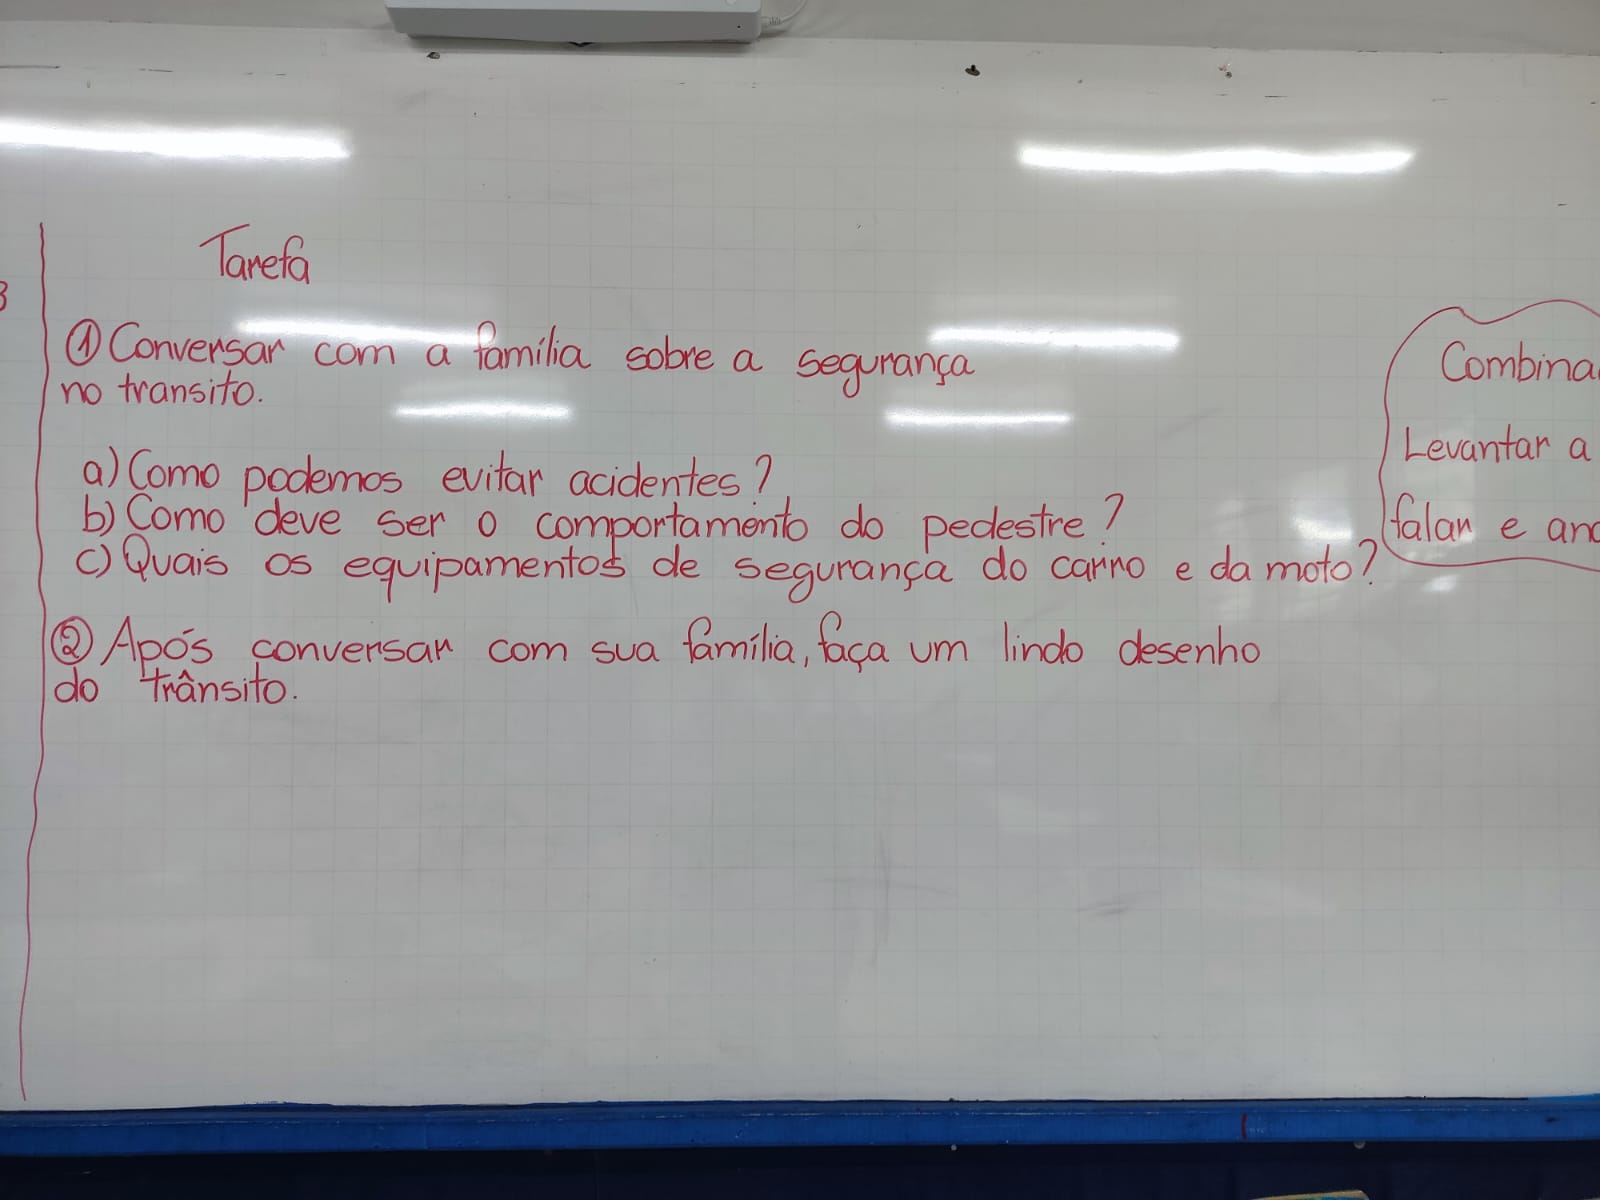 Tarefa
① Conversar com a família sobre a segurança
no transito.
a) Como podemos evitar acidentes?
b) Como deve ser o comportamento do pedestre?
c) Quais os equipamentos de segurança do carro e da moto?
② Após conversar com sua família, faça um lindo desenho
do trânsito.
Combina
Levantar a
falar e